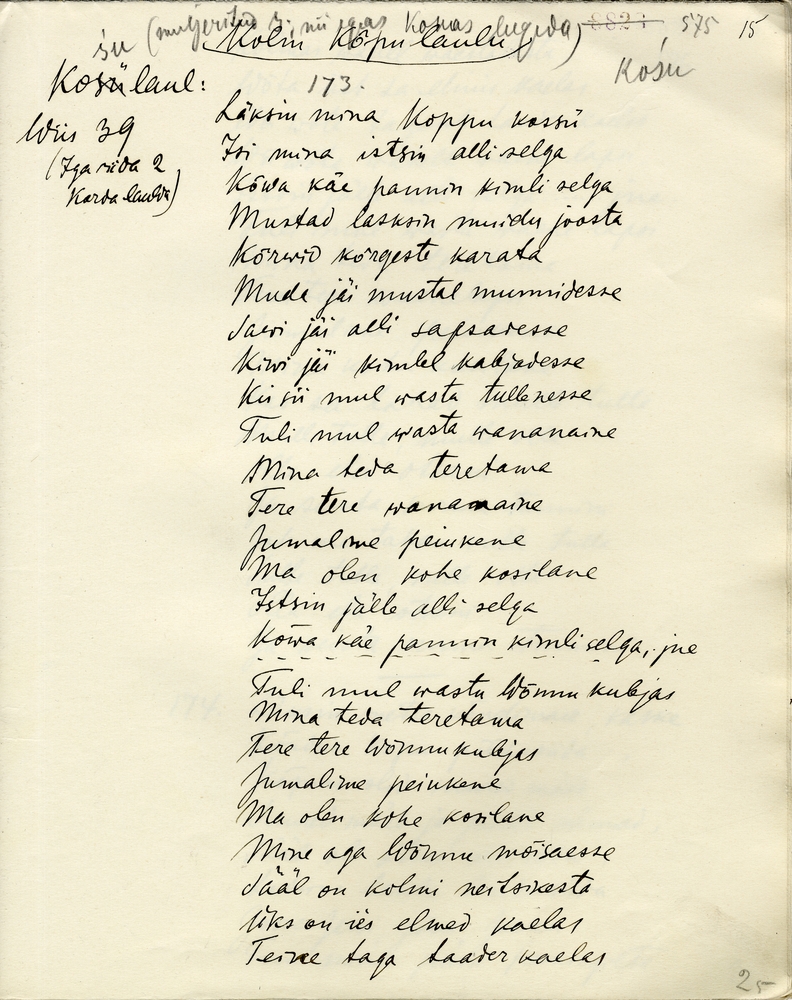 śu (muljeritud 3; nii igas Kosńas lugeda) 882+ , 575 15
Kolm Kõpu laulu
Kośu
Kosülaul:
173.
Wiis 39
(Iga rida 2
Korda laulda)
Läksin mina Koppu kossü
Isi mina istsin alli selga
Kõwa käe pannin kimli selga
Mustad lasksin muidu joosta
Kõrwid kõrgeste karata
Muda jäi mustal munnidesse
Sawi jäi alli sapsadesse
Kiwi jäi kimlel kabjadesse
Kis sii mul wasta tullenesse
Tuli mul wasta wananaine
Mina teda teretama
Tere tere wananaine
Jumalime peiukene
Ma olen kohe kosilane
Istsin jälle alli selga
Kowa käe pannin kimli selga, jne
Tuli mul wastu Wõnnu kubjas
Mina teda teretama
Tere tere Wõnnukubjas
Jumalime peiukene
Ma olen kohe kosilane
Mine aga Wõnnu mõisaesse
Sääl on kolmi neitsikesta
Üks on iis elmed kaelas
Teine taga taader kaelas
25